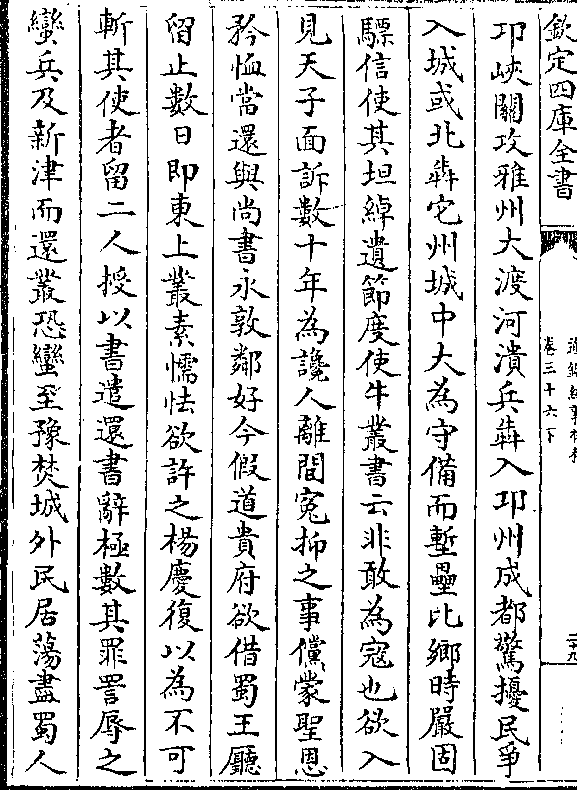 欽定四庫全書
通鑑紀事本末
卷三十六下
卭峽關攻雅州大渡河潰兵犇入卭州成都驚擾民爭
入城或北犇它州城中大為守備而塹壘比鄉時嚴固
驃信使其坦綽遺節度使牛叢書云非敢為寇也欲入
見天子面訴數十年為讒人離間寃抑之事儻蒙聖恩
矜恤當還與尚書永敦鄰好今假道貴府欲借蜀王廳
留止數日即東上叢素懦怯欲許之楊慶復以為不可
斬其使者留二人授以書遣還書辭極數其罪詈辱之
蠻兵及新津而還叢恐蠻至豫焚城外民居蕩盡蜀人